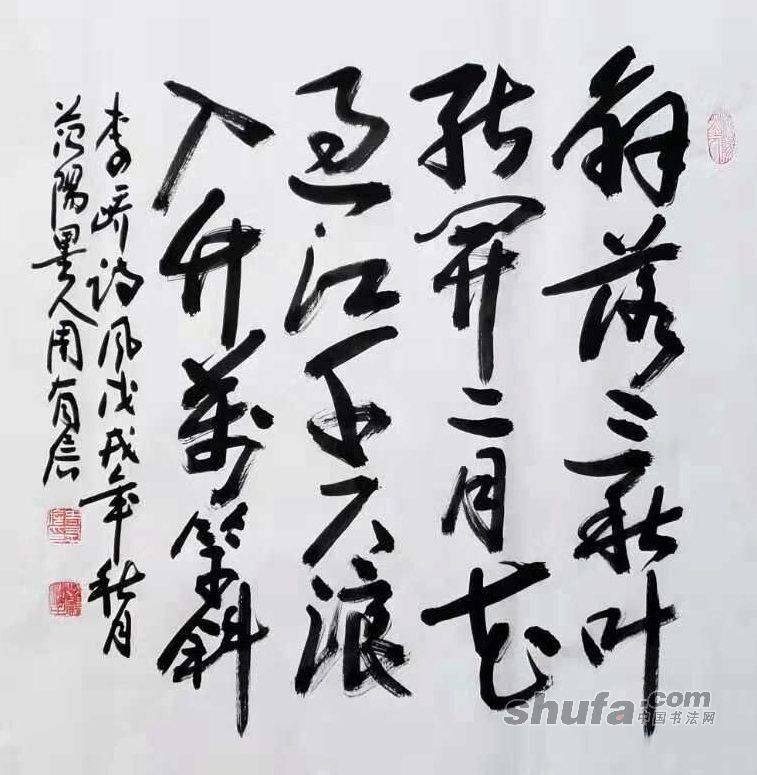 解落三秋叶
能開二月花
过江千尺浪
入竹萬竿斜
李峤诗风戊戌年秋月
范陽墨人周有
shufa.com
中国书法网